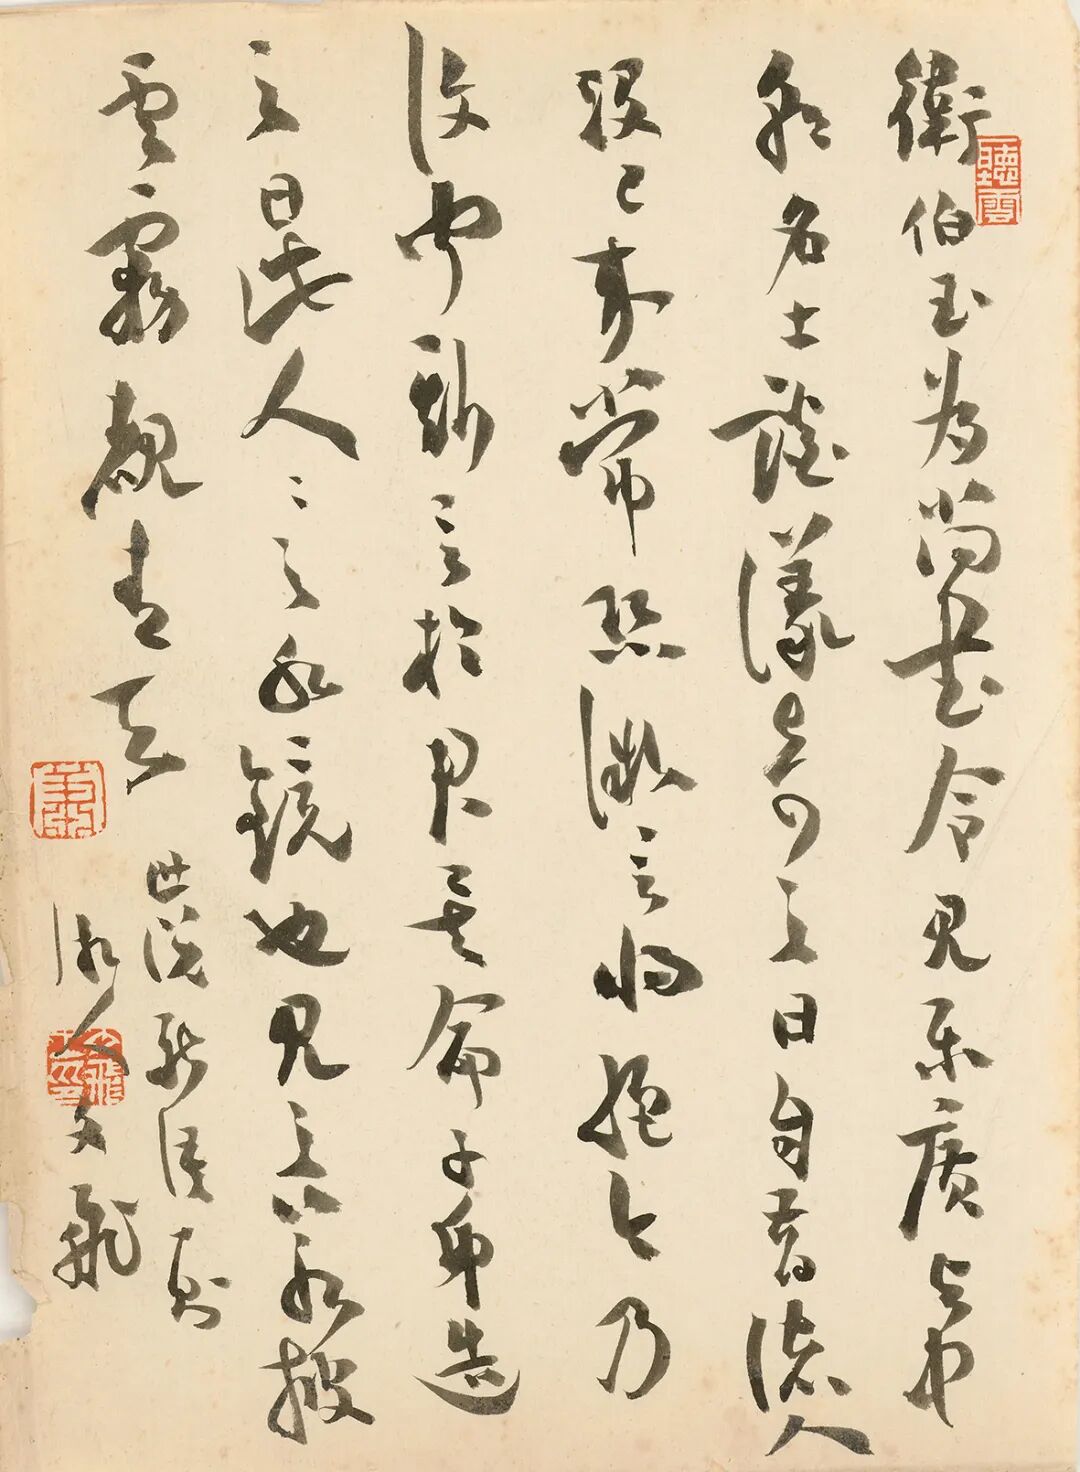 衛伯玉為尚書令見樂廣與中
朝名士談議奇之曰自昔諸人
沒已來常恐微言將絕今乃
復聞斯言於君矣命子弟造
之曰此人〻之水鏡也見之若披
雲霧覩青天
世說新語則
湘人文飛
聽雲
蕭